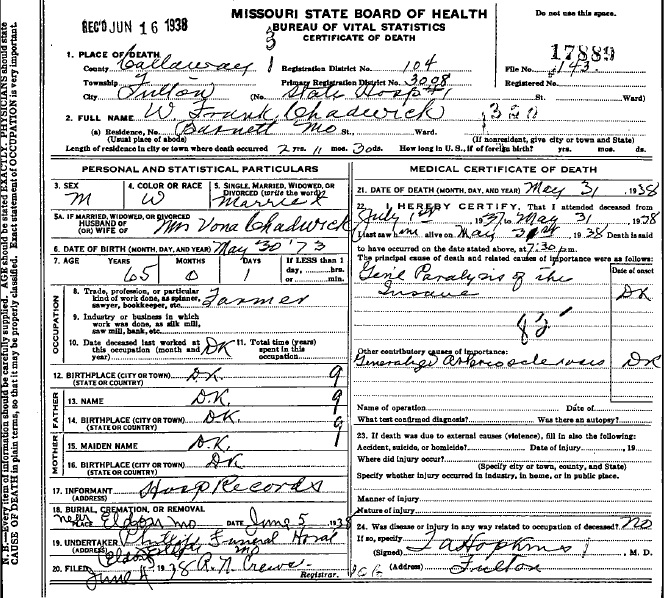 REC'D JUN 16 1938
MISSOURI STATE BOARD OF HEALTH
BUREAU OF VITAL STATISTICS
CERTIFICATE OF DEATH
Do not use this space.
17889
1. PLACE OF DEATH
County Callaway Registration District No. 104 File No. 143
Township Fulton Primary Registration District No. 3008 Registered No.
City (No. State Hosp #1 St. Ward)
2. FULL NAME W. Frank Chadwick 320
(a) Residence, No. Barnett Mo St., Ward.
(Usual place of abode) (If nonresident, give city or town and State)
Length of residence in city or town where death occurred 2 yrs. 11 mos. 30 ds. How long in U.S., if of foreign birth? yrs. mos. ds.
PERSONAL AND STATISTICAL PARTICULARS
3. SEX M
4. COLOR OR RACE W
5. SINGLE, MARRIED, WIDOWED, OR DIVORCED (write the word) Married
5A. IF MARRIED, WIDOWED, OR DIVORCED
HUSBAND OF (OR) WIFE OF Mrs Vona Chadwick
6. DATE OF BIRTH (MONTH, DAY, AND YEAR) May 30 '73
7. AGE YEARS MONTHS DAYS If LESS than 1 day, ....hrs. or ....min.
65 0 1
OCCUPATION
8. Trade, profession, or particular kind of work done, as spinner, sawyer, bookkeeper, etc. Farmer
9. Industry or business in which work was done, as silk mill, saw mill, bank, etc.
10. Date deceased last worked at this occupation (month and year) DK
11. Total time (years) spent in this occupation
12. BIRTHPLACE (CITY OR TOWN) (STATE OR COUNTRY) DK. 9
FATHER
13. NAME DK. 9
14. BIRTHPLACE (CITY OR TOWN) (STATE OR COUNTRY) DK. 9
MOTHER
15. MAIDEN NAME D.K.
16. BIRTHPLACE (CITY OR TOWN) (STATE OR COUNTRY) DK
17. INFORMANT (ADDRESS) Hosp Records
18. BURIAL, CREMATION, OR REMOVAL
PLACE Eldon Mo DATE June 5, 1938
19. UNDERTAKER Phillips Funeral Home
(ADDRESS) Eldon Mo
20. FILED June 4, 1938 R. N. Crews
Registrar.
MEDICAL CERTIFICATE OF DEATH
21. DATE OF DEATH (MONTH, DAY, AND YEAR) May 31, 1938
22. I HEREBY CERTIFY, That I attended deceased from
July 1st, 1937 to May 31, 1938
I last saw him alive on May 31st, 1938 Death is said
to have occurred on the date stated above, at 7:30 pm.
The principal cause of death and related causes of importance were as follows:
Date of onset
Genl Paralysis of the
Insane DK
83
Other contributory causes of importance:
Generalized Arteriosclerosis DK
Name of operation Date of
What test confirmed diagnosis? Was there an autopsy?
23. If death was due to external causes (violence), fill in also the following:
Accident, suicide, or homicide? Date of injury , 19
Where did injury occur?
(Specify city or town, county, and State)
Specify whether injury occurred in industry, in home, or in public place.
Manner of injury
Nature of injury
24. Was disease or injury in any way related to occupation of deceased? No
If so, specify
(Signed) T A Hopkins, M. D.
(Address) Fulton
N. B.—Every item of information should be carefully supplied. AGE should be stated EXACTLY. PHYSICIANS should state
CAUSE OF DEATH in plain terms, so that it may be properly classified. Exact statement of OCCUPATION is very important.